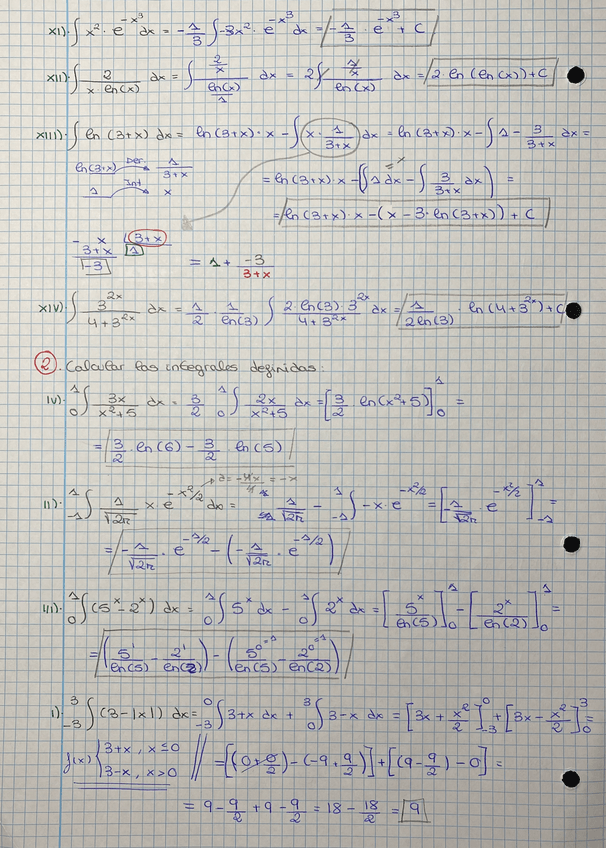 XI). ∫ x² · e^(-x³) dx = -1/3 ∫ -3x² · e^(-x³) dx = -1/3 · e^(-x³) + C
XII). ∫ 2/(x ln(x)) dx = ∫ (2/x)/(ln(x)/1) dx = 2∫ (1/x)/ln(x) dx = 2 · ln(ln(x)) + C
XIII). ∫ ln(3+x) dx = ln(3+x) · x - ∫ x · 1/(3+x) dx = ln(3+x) · x - ∫ 1 - 3/(3+x) dx =
ln(3+x) Der. 1/(3+x)
1 Int x
= ln(3+x) · x - (∫ 1 dx = x - ∫ 3/(3+x) dx) =
= ln(3+x) · x - (x - 3 · ln(3+x)) + C
- x 3+x
3+x 1
-3
= 1 + -3/(3+x)
XIV). ∫ 3^(2x)/(4+3^(2x)) dx = 1/2 · 1/ln(3) ∫ 2 · ln(3) · 3^(2x)/(4+3^(2x)) dx = 1/(2ln(3)) · ln(4+3^(2x)) + C
2. Calcular las integrales definidas:
IV). ₀¹∫ 3x/(x²+5) dx = 3/2 ₀¹∫ 2x/(x²+5) dx = [3/2 · ln(x²+5)]₀¹ =
= 3/2 · ln(6) - 3/2 · ln(5)
II). ₋₁¹∫ 1/√2π x · e^(-x²/2) dx = 1/√2π - ₋₁¹∫ -x · e^(-x²/2) = [-1/√2π · e^(-x²/2)]₋₁¹ =
= -1/√2π · e^(-1/2) - (-1/√2π · e^(-1/2))
III). ₀¹∫ (5^x - 2^x) dx = ₀¹∫ 5^x dx - ₀¹∫ 2^x dx = [5^x/ln(5)]₀¹ - [2^x/ln(2)]₀¹ =
= (5¹/ln(5) - 2¹/ln(2)) - (5⁰⁼¹/ln(5) - 2⁰⁼¹/ln(2))
I). ₋₃³∫ (3-|x|) dx = ₋₃⁰∫ 3+x dx + ₀³∫ 3-x dx = [3x + x²/2]₋₃⁰ + [3x - x²/2]₀³ =
f(x) { 3+x, x≤0
3-x, x>0
= [(0+0/2) - (-9+9/2)] + [(9-9/2) - 0] =
= 9 - 9/2 + 9 - 9/2 = 18 - 18/2 = 9